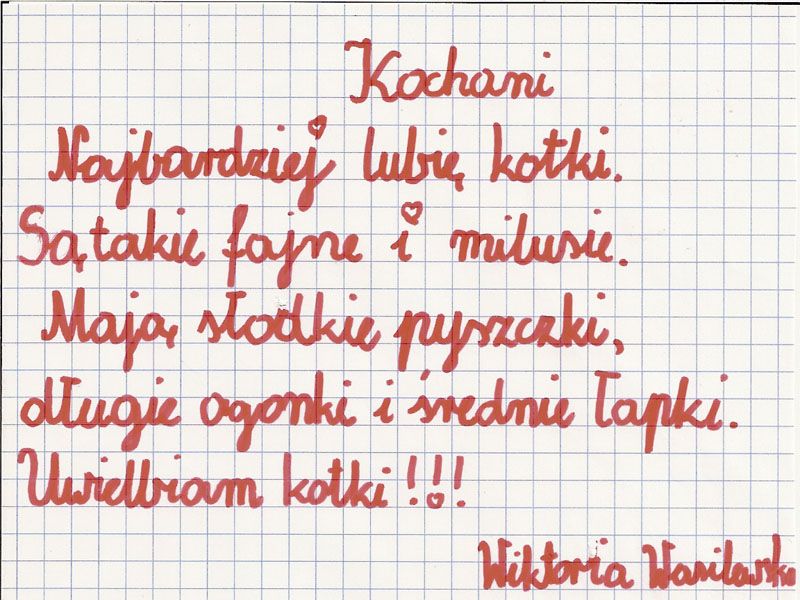 Kochani
Najbardziej lubię kotki.
Są takie fajne i milusie.
Mają słodkie pyszczki,
długie ogonki i średnie łapki.
Uwielbiam kotki!!!
Wiktoria